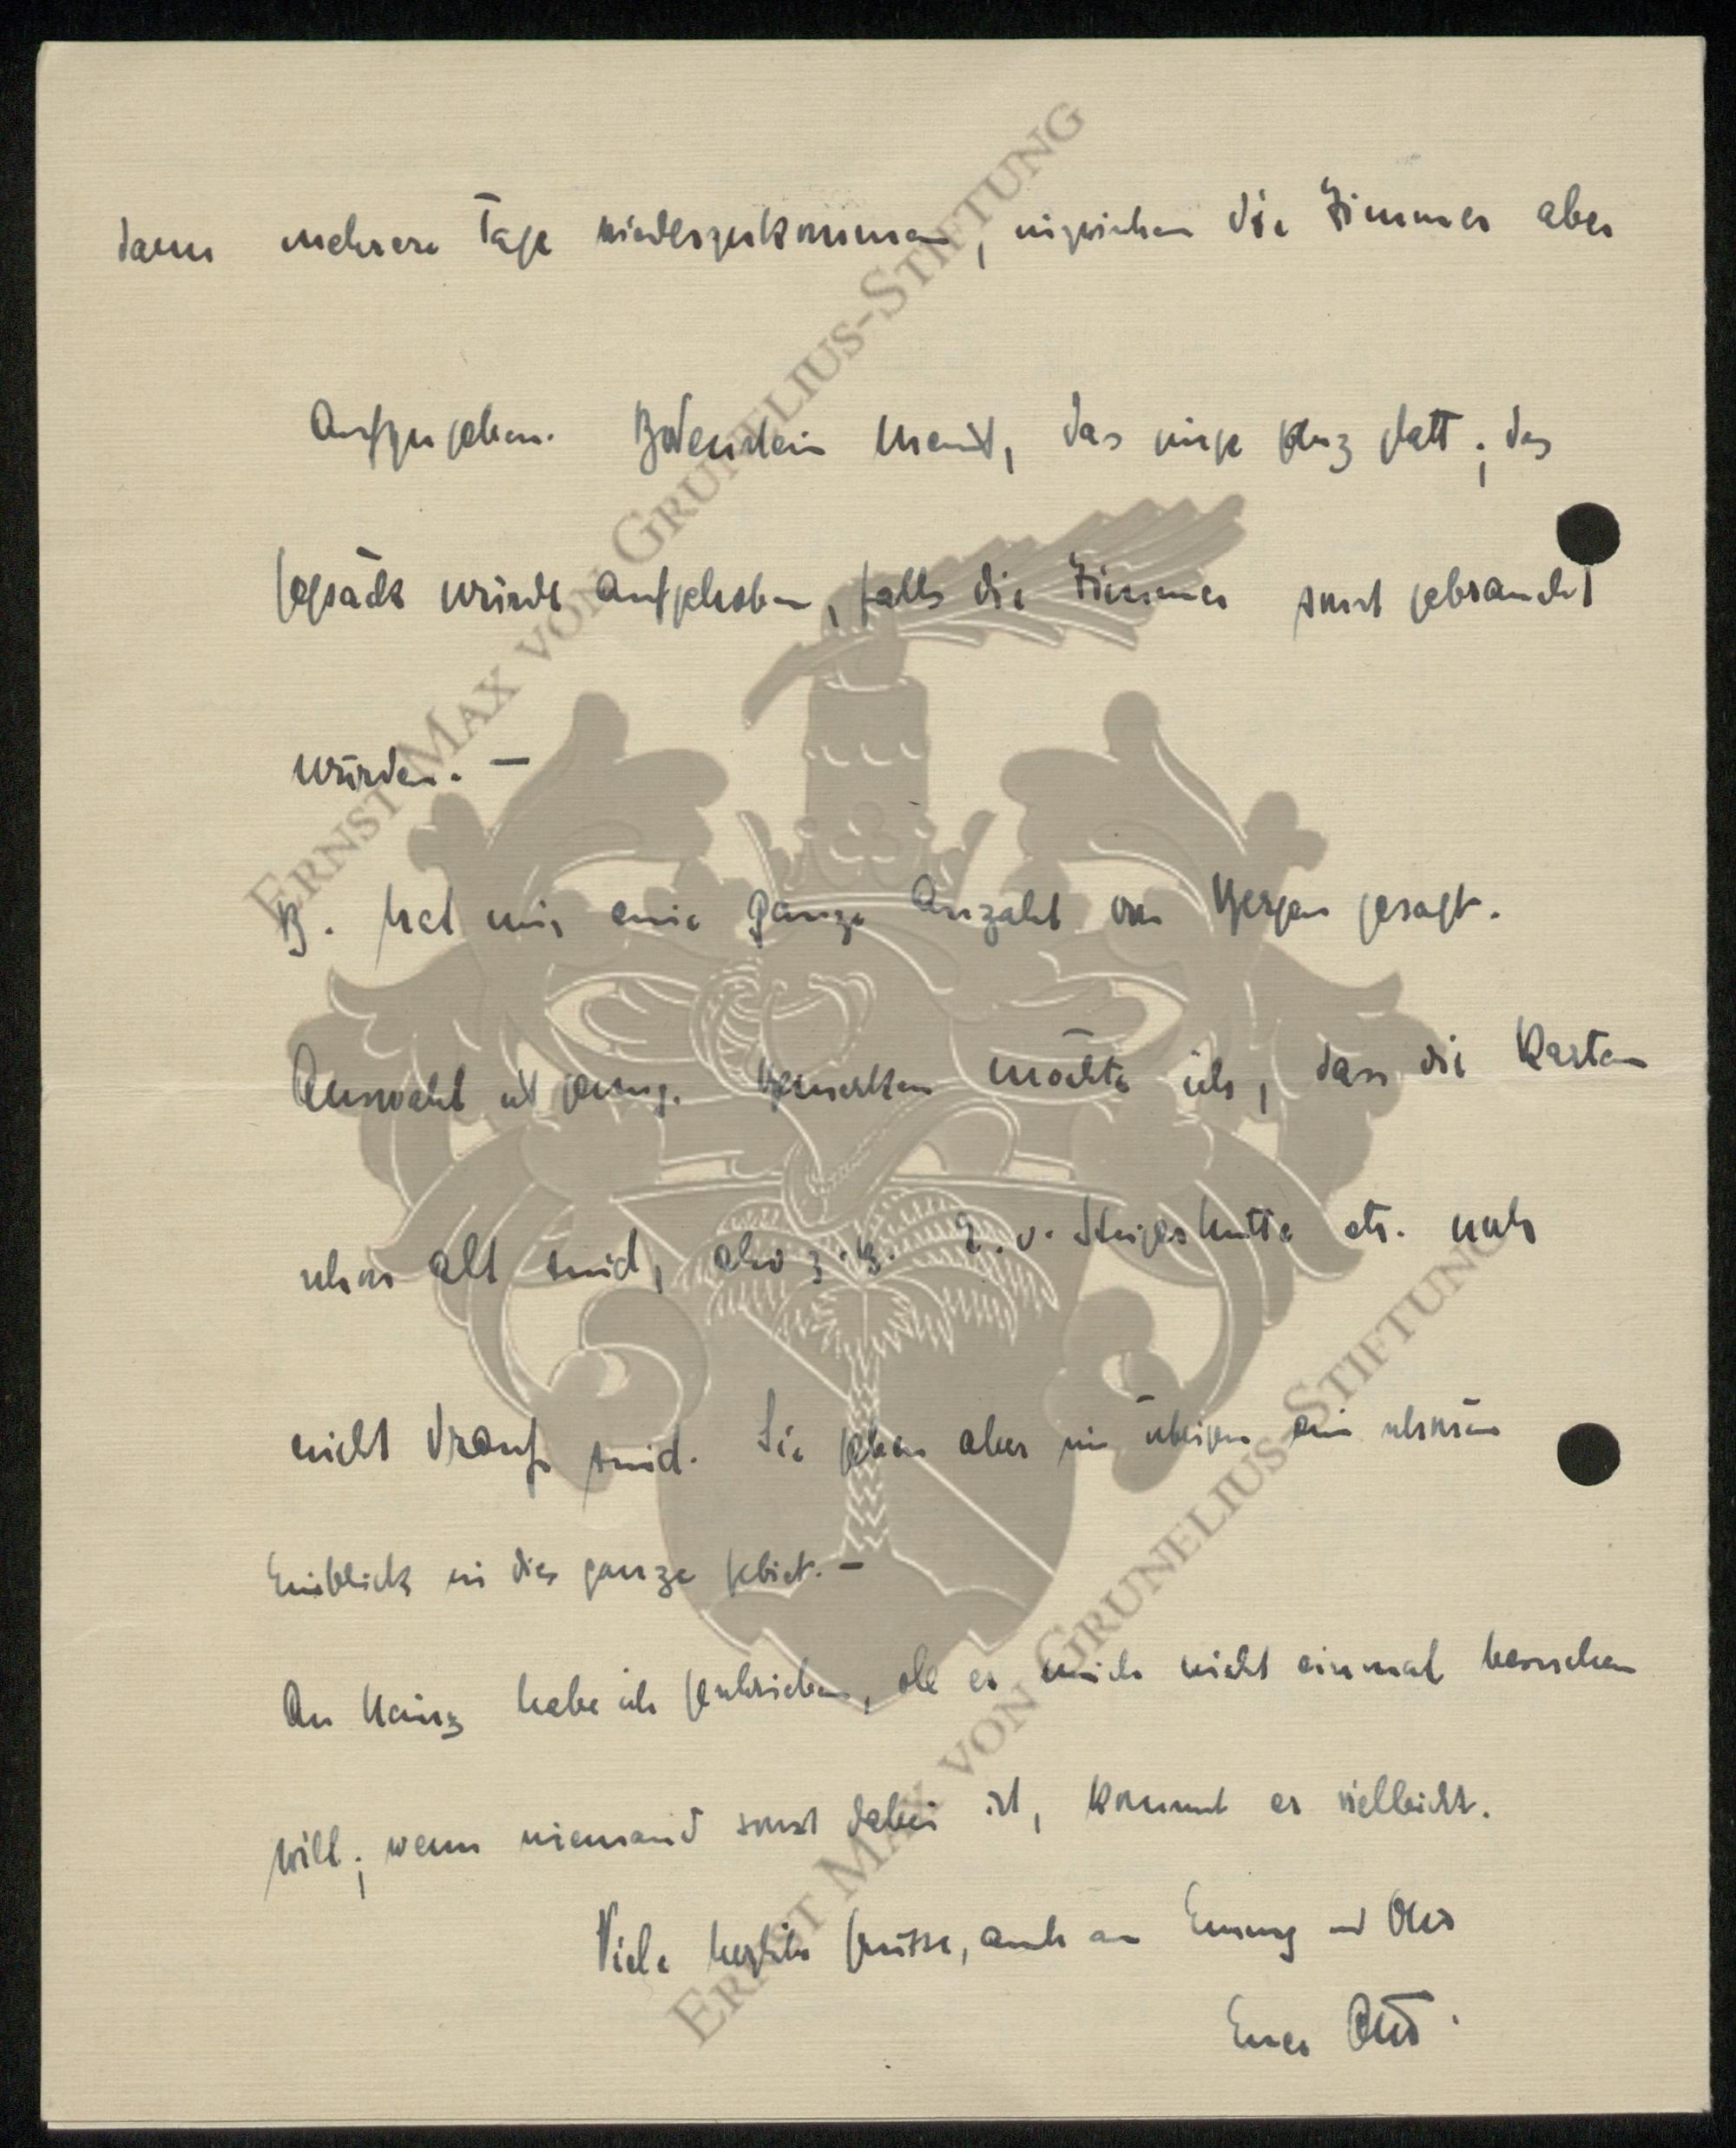 dann mehrere Tage wiederzukommen, inzwischen die Zimmer aber
aufzugeben. Bodenstein meint, das ginge ganz glatt; das
Gepäck würde aufgehoben, falls die Zimmer sonst gebraucht
würden. —
B. hat mir eine ganze Anzahl von Bergen gesagt.
Auswahl ist genug. Bemerken möchte ich, dass die Karten
schon alt sind, also z. B. E. v. Steigerhütte etc. noch
nicht drauf sind. Sie geben aber im übrigen ein schönen
Einblick in dies ganze Gebiet. —
An Heinz habe ich geschrieben, ob er mich nicht einmal besuchen
will; wenn niemand sonst dabei ist, kommt er vielleicht.
Viele herzliche Grüsse, auch an Emmy und Otto
Euer Otto.
ERNST MAX VON GRUNELIUS-STIFTUNG
ERNST MAX VON GRUNELIUS-STIFTUNG